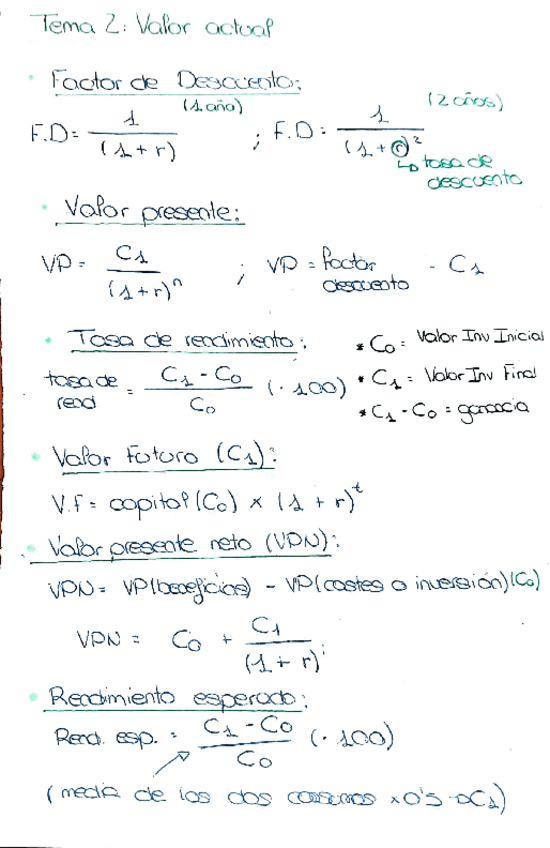 Tema 2: Valor actual
· Factor de Descuento:
F.D = 1 / (1 + r) (1 año) ; F.D = 1 / (1 + r)² (2 años)
↳ tasa de descuento
· Valor presente:
VP = C1 / (1 + r)^n ; VP = factor descuento · C1
· Tasa de rendimiento:
tasa de rend = (C1 - C0) / C0 (· 100)
* C0 = Valor Inv Inicial
* C1 = Valor Inv Final
* C1 - C0 = ganacia
· Valor Futuro (C1):
V.f = capital (C0) × (1 + r)^t
· Valor presente neto (VPN):
VPN = VP(beneficios) - VP(costes o inversión)(C0)
VPN = C0 + C1 / (1 + r)^i
· Rendimiento esperado:
Rend. esp. = (C1 - C0) / C0 (· 100)
(media de los dos × 0'5 → C1)